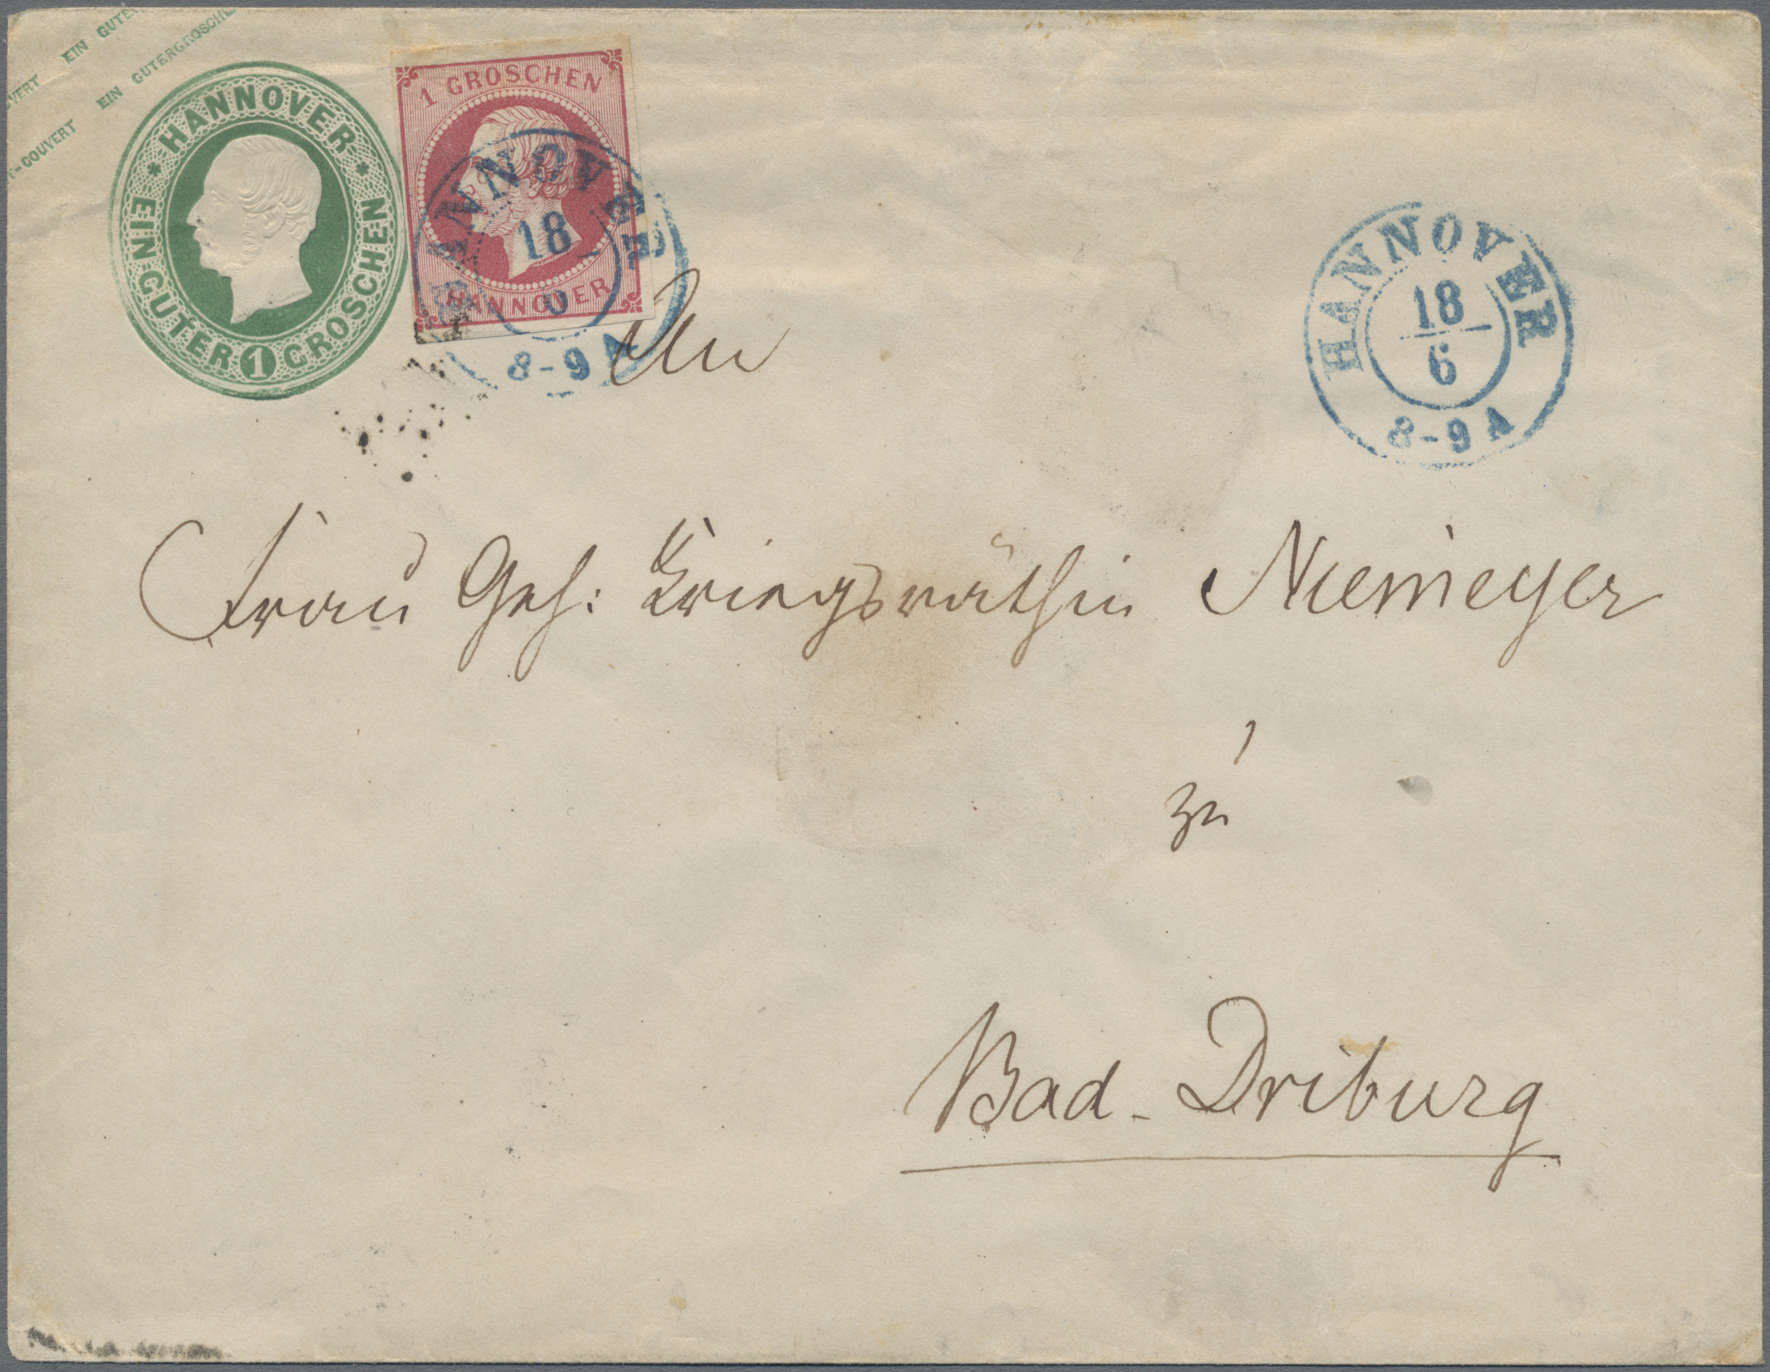 EIN GUTE
VERT EIN GUTERGROSCHE
-COUVERT
HANNOVER
EIN GUTER 1 GROSCHEN
1 GROSCHEN
HANNOVER
HANNOVER
18
8-9 A
HANNOVER
18
6
8-9 A
An
Frau Geh: Kriegsräthin Niemeyer
zu
Bad-Driburg